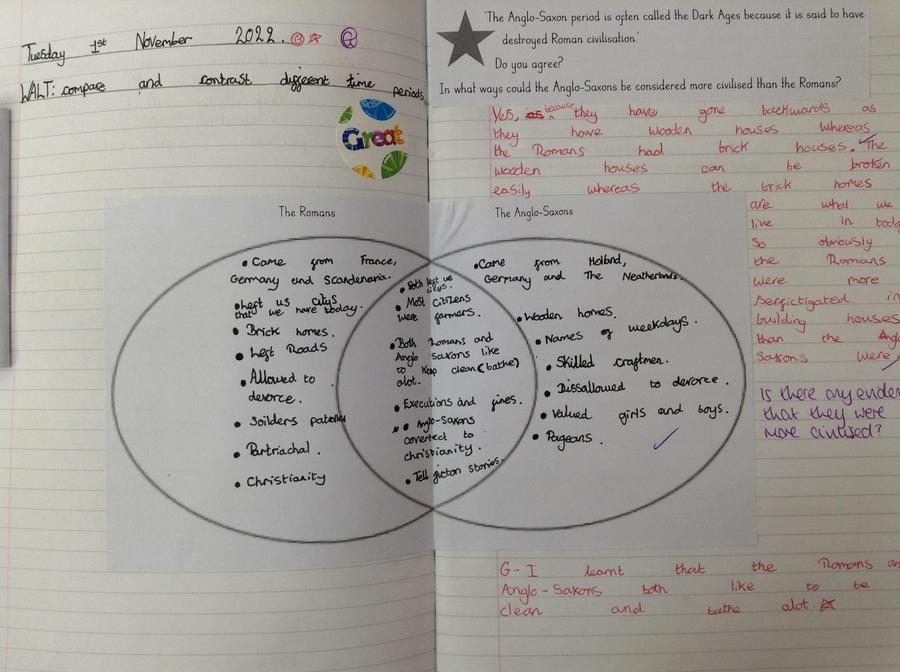 Tuesday 1st November 2022.
WALT: compare and contrast different time periods
Great
'The Anglo-Saxon period is often called the Dark Ages because it is said to have
destroyed Roman civilisation.'
Do you agree?
In what ways could the Anglo-Saxons be considered more civilised than the Romans?
Yes, because they have gone backwards as
they have wooden houses whereas
the Romans had brick houses. The
wooden houses can be broken
easily whereas the brick homes
are what we
live in today
So obviously
the Romans
were more
Serfictigated in
building houses
than the Anglo
Saxons were
Is there any eviden
that they were
more civilised?
The Romans
• Came from France,
Germany and Scandenaria.
• Left us citys
that we have today.
• Brick homes.
• Left Roads
• Allowed to
devorce.
• Soilders
• Partriachal.
• Christianity
• Both left us
citys.
• Most Citizens
were farmers.
• Both Romans and
Anglo Saxons like
to Keep clean (bathe)
alot.
• Executions and fines.
• Anglo-Saxons
coverted to
christianity.
• Tell ficton stories.
The Anglo-Saxons
• Came from Holland,
Germany and The Neatherlands.
• Wooden homes.
• Names of weekdays.
• Skilled craftmen.
• Dissallowed to devorce.
• Valued girls and boys.
• Pageans.
G- I learnt that the Romans an
Anglo-Saxons both like to be
clean and bathe alot.